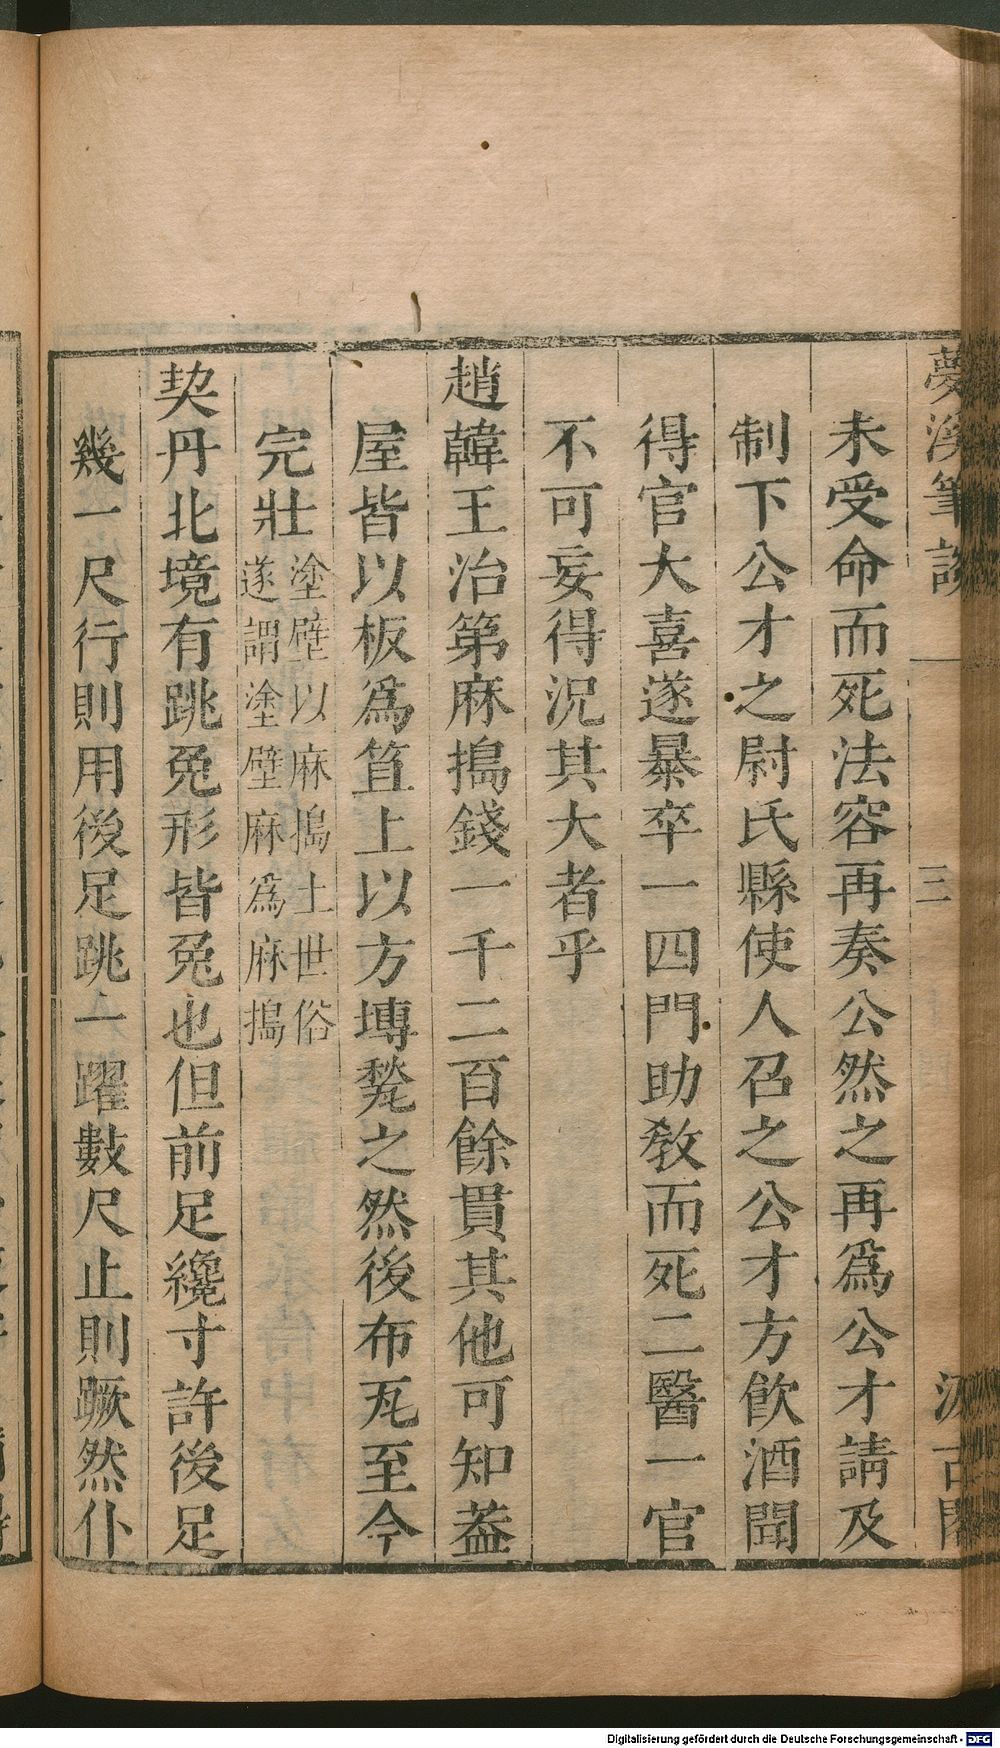 夢溪筆談 三 汲古閣
未受命而死法容再奏公然之再爲公才請及
制下公才之尉氏縣使人召之公才方飲酒聞
得官大喜遂暴卒一四門助教而死二醫一官
不可妄得況其大者乎
趙韓王治第麻擣錢一千二百餘貫其他可知葢
屋皆以板爲笪上以方塼甃之然後布瓦至今
完壯塗壁以麻擣土世俗
遂謂塗壁麻爲麻擣
契丹北境有跳兎形皆兎也但前足纔寸許後足
幾一尺行則用後足跳一躍數尺止則蹶然仆
Digitalisierung gefördert durch die Deutsche Forschungsgemeinschaft - DFG